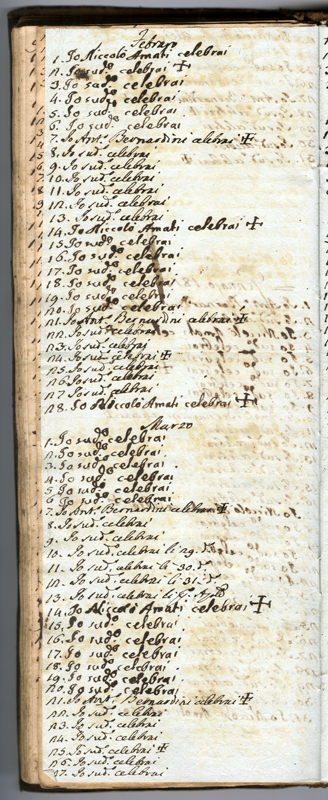 Febraro
1. Io Niccolò Amati celebrai
2. Io sud.º celebrai ✝
3. Io sud.º celebrai
4. Io sud.º celebrai
5. Io sud.º celebrai
6. Io sud.º celebrai
7. Io Ant.º Bernardini celebrai ✝
8. Io sud.º celebrai
9. Io sud.º celebrai
10. Io sud.º celebrai
11. Io sud.º celebrai
12. Io sud.º celebrai
13. Io sud.º celebrai
14. Io Niccolò Amati celebrai ✝
15 Io sud.º celebrai
16. Io sud.º celebrai
17. Io sud.º celebrai
18. Io sud.º celebrai
19. Io sud.º celebrai
20. Io sud.º celebrai
21. Io Ant.º Bernardini celebrai ✝
22. Io sud.º celebrai
23. Io sud.º celebrai
24. Io sud.º celebrai ✝
25. Io sud.º celebrai
26 Io sud.º celebrai
27 Io sud.º celebrai
28. Io Niccolò Amati celebrai ✝
Marzo
1. Io sud.º celebrai
2. Io sud.º celebrai
3. Io sud.º celebrai
4. Io sud.º celebrai
5. Io sud.º celebrai
6 Io sud.º celebrai
7. Io Ant.º Bernardini celebrai ✝
8. Io sud.º celebrai
9. Io sud.º celebrai
10. Io sud.º celebrai li 29. d.º
11. Io sud.º celebrai li 30. d.º
12. Io sud.º celebrai li 31. d.º
13. Io sud.º celebrai li
14. Io Niccolò Amati celebrai ✝
15. Io sud.º celebrai
16. Io sud.º celebrai
17. Io sud.º celebrai
18. Io sud.º celebrai
19. Io sud.º celebrai
20. Io sud.º celebrai
21. Io Ant.º Bernardini celebrai ✝
22. Io sud.º celebrai
23. Io sud.º celebrai
24. Io sud.º celebrai
25. Io sud.º celebrai ✝
26. Io sud.º celebrai
27. Io sud.º celebrai